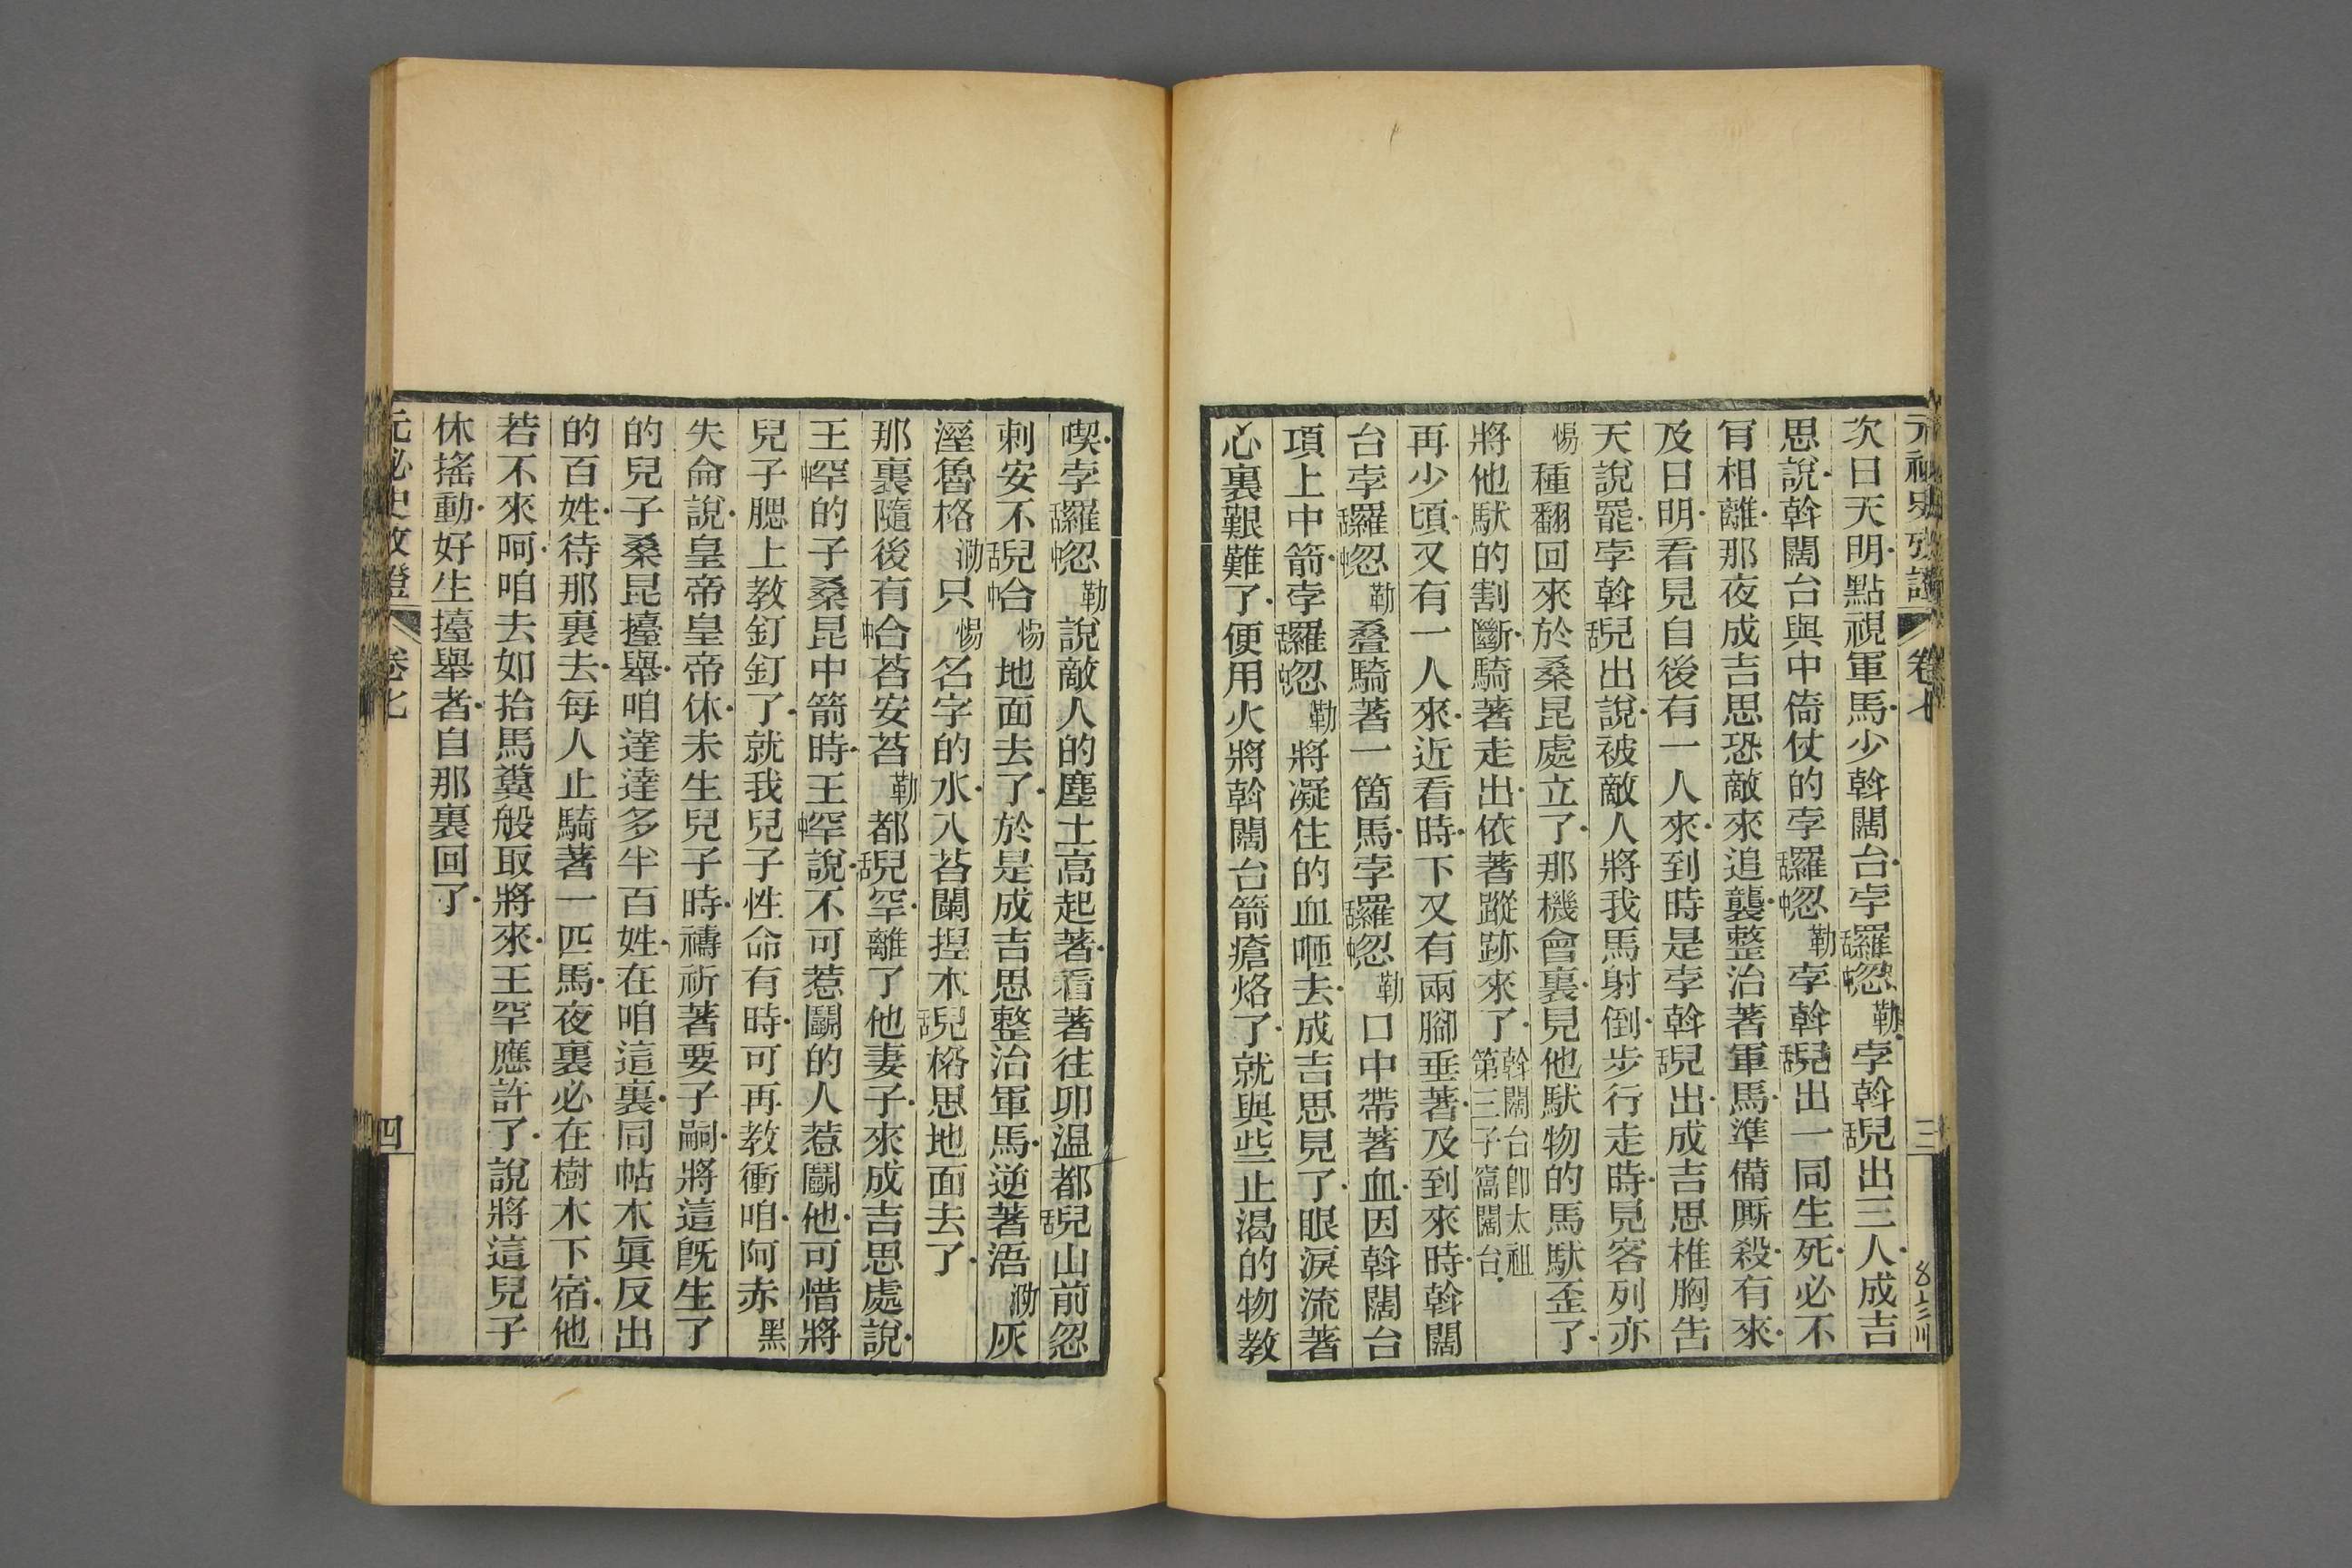 元祕史攷證 卷七 三
次日天明點視軍馬少斡闊台孛舌羅中忽勒孛斡舌兒出三人成吉
思說斡闊台與中倚仗的孛舌羅中忽勒孛斡舌兒出一同生死必不
肎相離那夜成吉思恐敵來追襲整治著軍馬準備厮殺有來
及日明看見自後有一人來到時是孛斡舌兒出成吉思椎胸告
天說罷孛斡舌兒出說被敵人將我馬射倒步行走時見客列亦
惕種翻回來於桑昆處立了那機會裏見他馱物的馬馱歪了
將他馱的割斷騎著走出依著蹤跡來了斡闊台卽太祖第三子窩闊台
再少頃又有一人來近看時下又有兩腳垂著及到來時斡闊
台孛舌羅中忽勒疊騎著一箇馬孛舌羅中忽勒口中帶著血因斡闊台
項上中箭孛舌羅中忽勒將凝住的血咂去成吉思見了眼淚流著
心裏艱難了便用火將斡闊台箭瘡烙了就與些止渴的物教
喫孛舌羅中忽勒說敵人的塵土高起著看著往卯温都舌兒山前忽
剌安不舌兒中合惕地面去了於是成吉思整治軍馬逆著浯泐灰
溼魯格泐只惕名字的水入荅闌捏木舌兒格思地面去了
那裏隨後有中合荅安荅勒都舌兒罕離了他妻子來成吉思處說
王中罕的子桑昆中箭時王中罕說不可惹鬭的人惹鬭他可惜將
兒子腮上教釘釘了就我兒子性命有時可再教衝咱阿赤黑
失侖說皇帝皇帝休未生兒子時禱祈著要子嗣將這旣生了
的兒子桑昆擡舉咱達達多半百姓在咱這裏同帖木眞反出
的百姓待那裏去每人止騎著一匹馬夜裏必在樹木下宿他
若不來呵咱去如拾馬糞般取將來王罕應許了說將這兒子
休搖動好生擡舉者自那裏回了
元祕史攷證 卷七 四